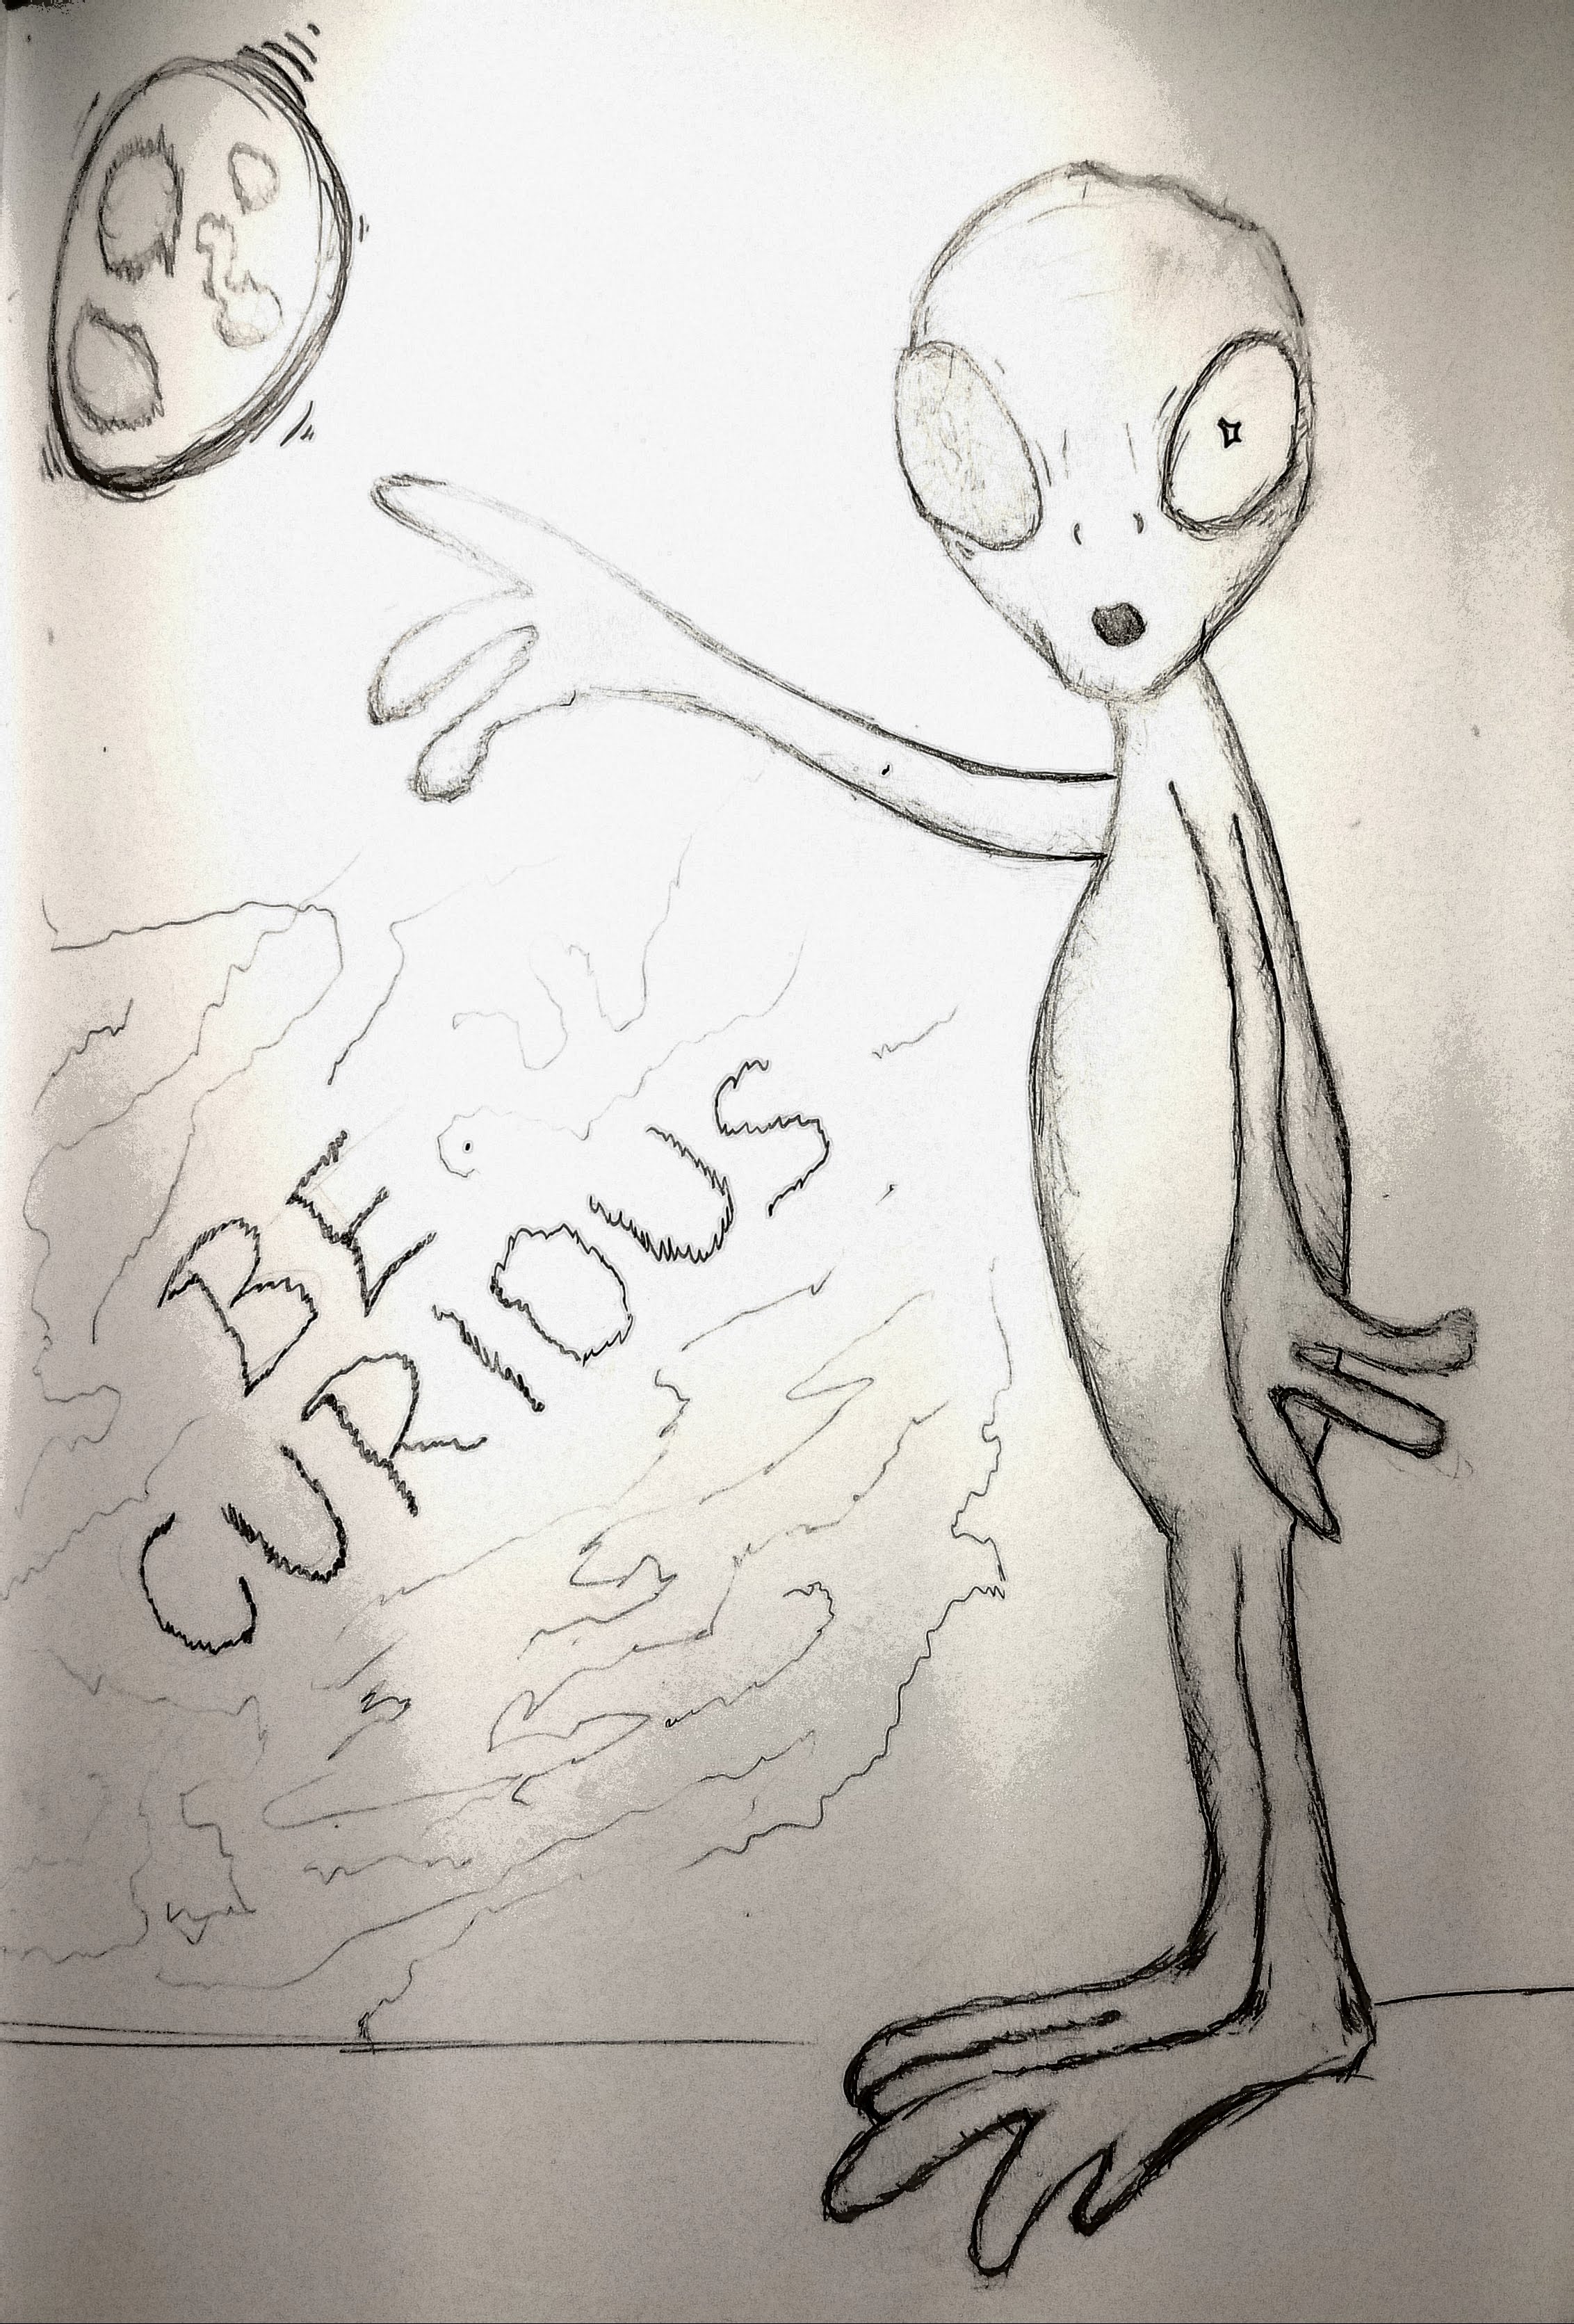 BE
CURIOUS